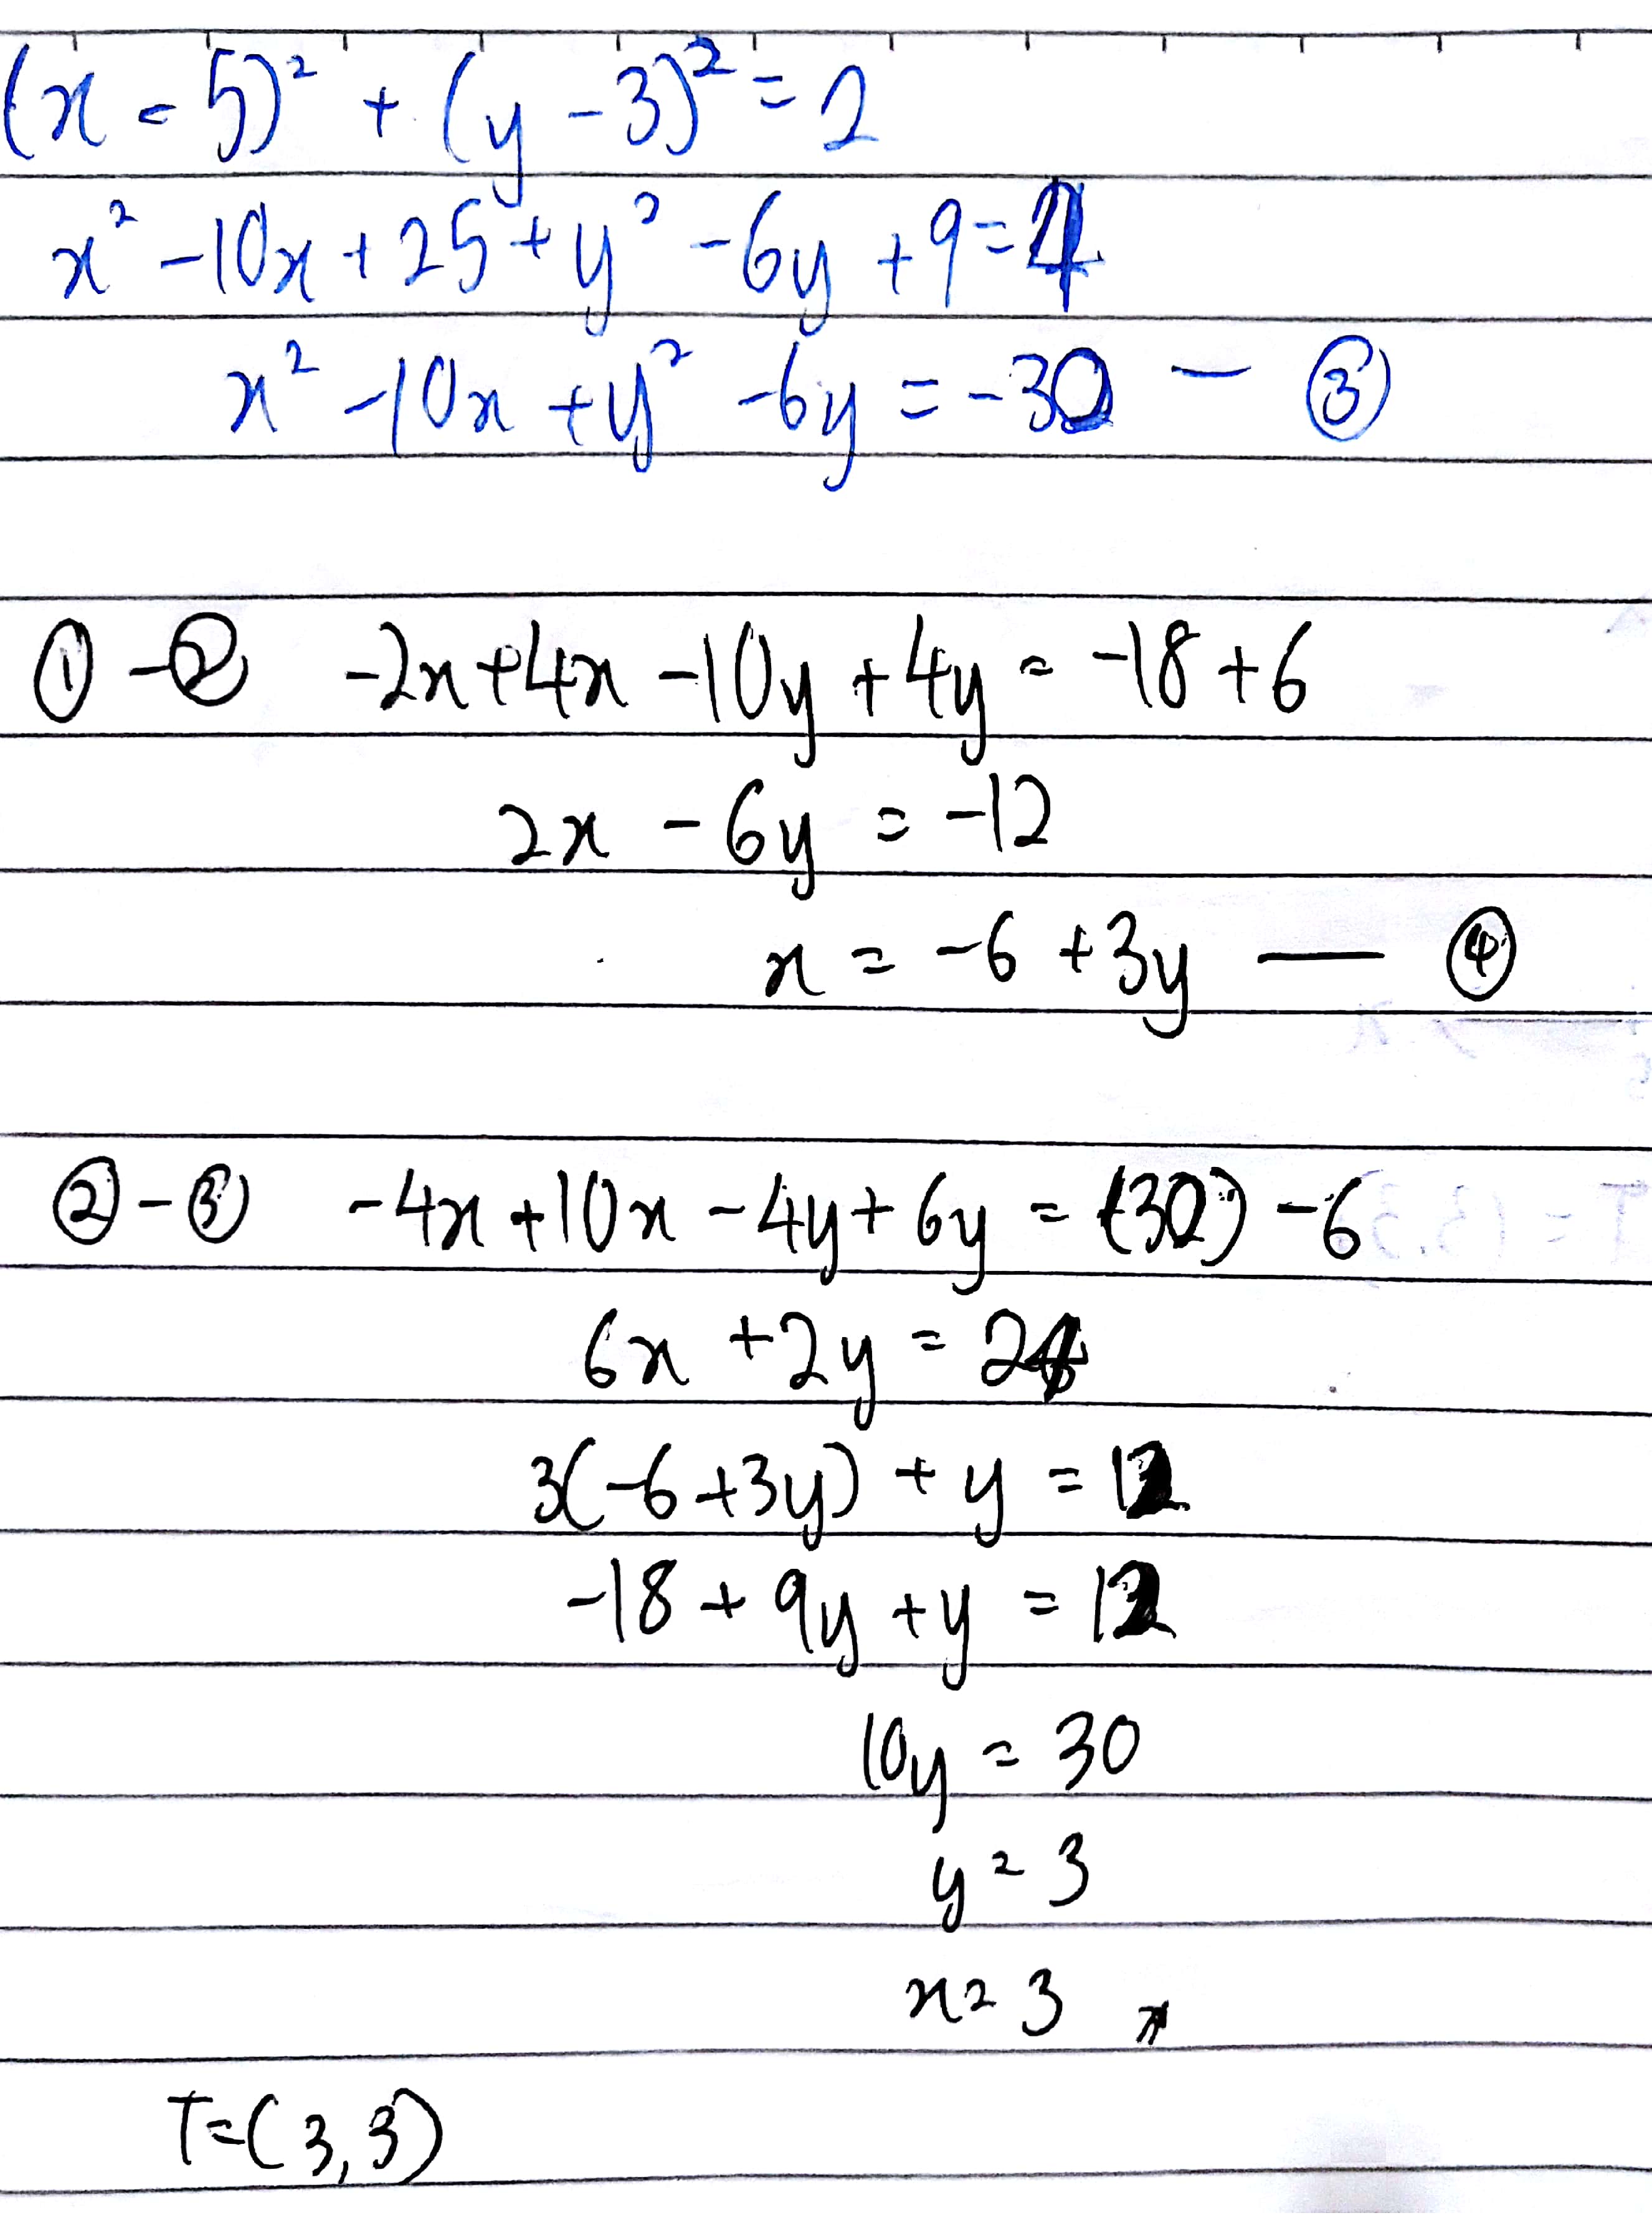 (x - 5)² + (y - 3)² = 2
x² - 10x + 25 + y² - 6y + 9 = 4
x² - 10x + y² - 6y = -30 — ③
① - ② -2x + 4x - 10y + 4y = -18 + 6
2x - 6y = -12
x = -6 + 3y — ④
② - ③ -4x + 10x - 4y + 6y = (30) - 6
6x + 2y = 24
3(-6 + 3y) + y = 12
-18 + 9y + y = 12
10y = 30
y = 3
x = 3
T = (3, 3)